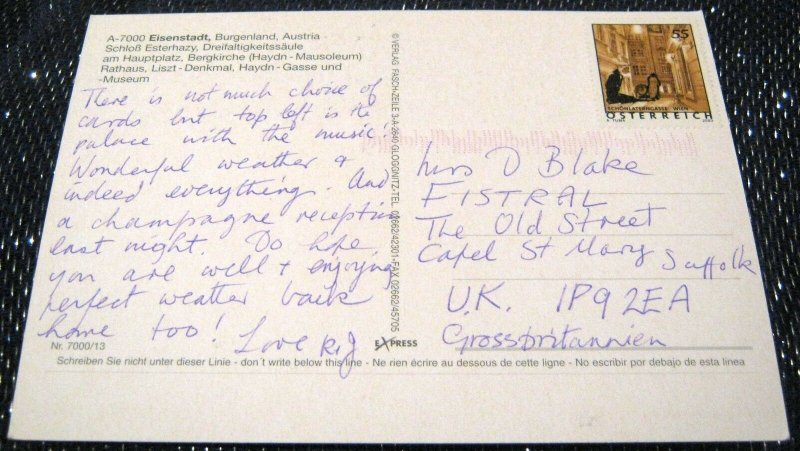 A-7000 Eisenstadt, Burgenland, Austria
Schloß Esterhazy, Dreifaltigkeitssäule
am Hauptplatz, Bergkirche (Haydn - Mausoleum)
Rathaus, Liszt - Denkmal, Haydn - Gasse und
-Museum
There is not much choice of
cards but top left is the
palace with the music.
Wonderful weather &
indeed everything. And
a champagne reception
last night. Do hope
you are well + enjoying
perfect weather back
home too! Love R&J
Nr. 7000/13
© VERLAG FASCH-ZEILE 3-A-2640 GLOGGNITZ-TEL. 02662/42301-FAX 02662/45705
EXPRESS
55
SCHÖNLATERNGASSE WIEN
ÖSTERREICH
Mrs D Blake
FISTRAL
The Old Street
Capel St Mary Suffolk
U.K. IP9 2EA
Grossbritannien
Schreiben Sie nicht unter dieser Linie - don´t write below this line - Ne rien écrire au dessous de cette ligne - No escribir por debajo de esta linea